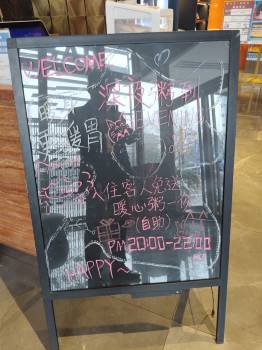 WELCOME
深夜粥到
暖胃
入住客人免送
暖心粥一份
(自助)
PM 20:00-22:00
HAPPY~